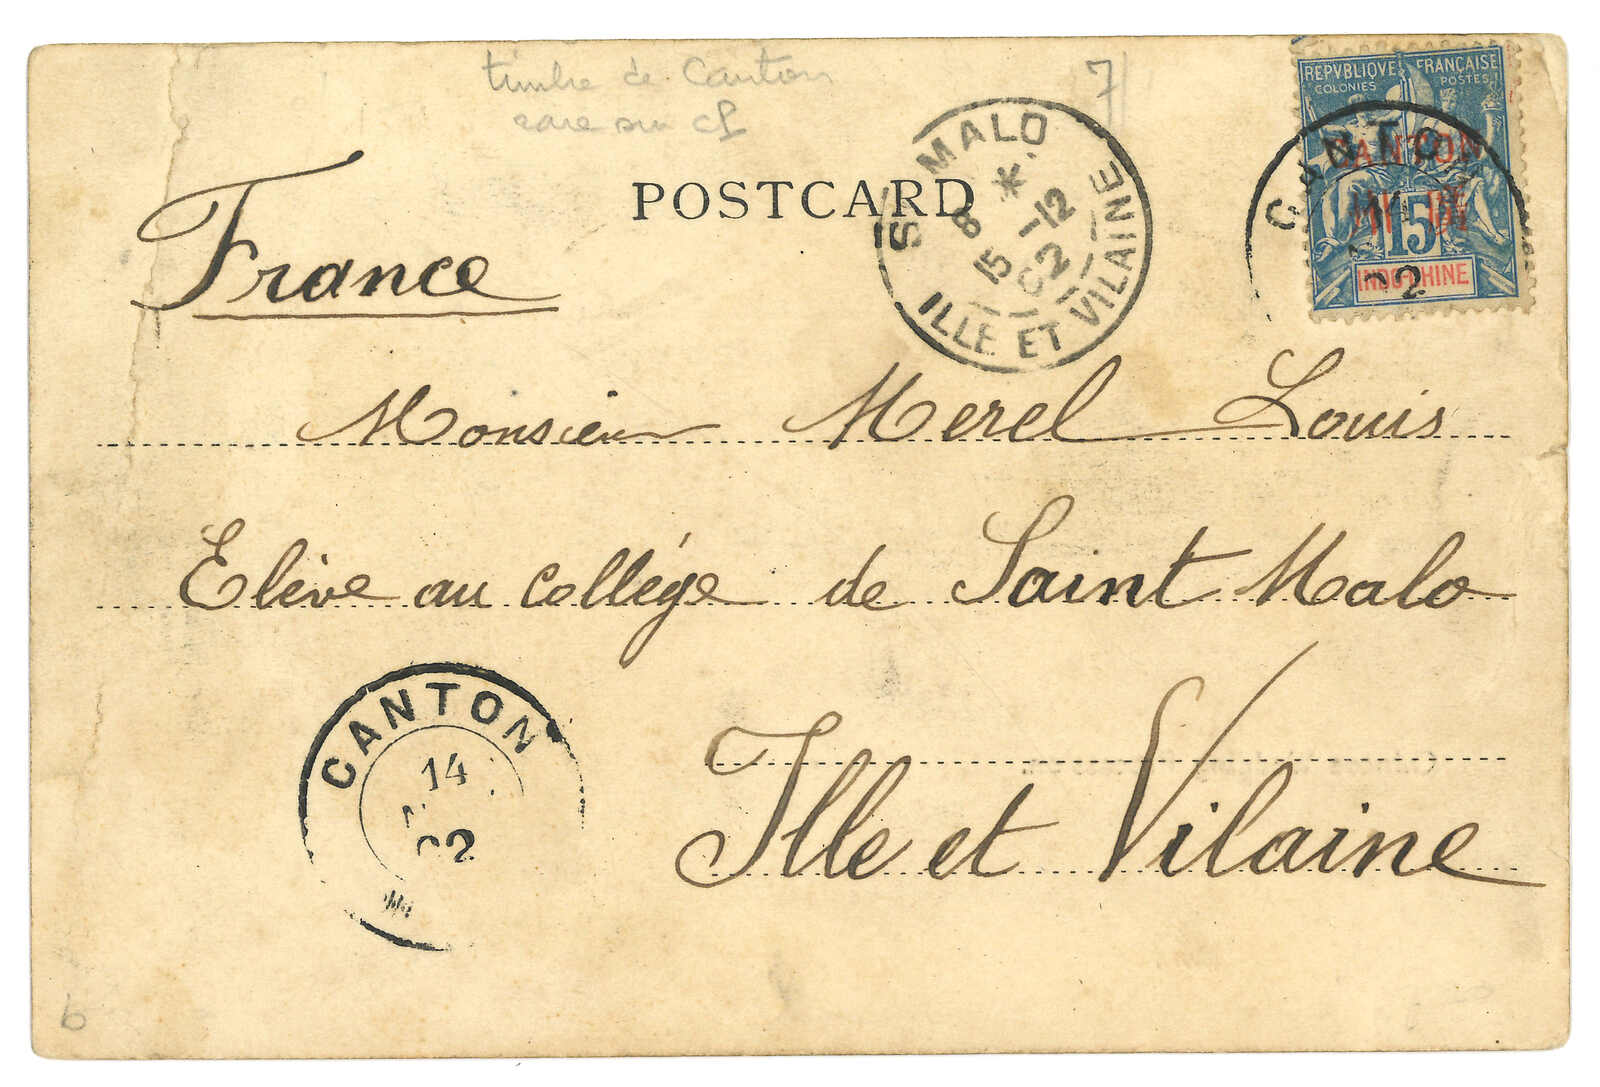 timbre de Canton
rare sur cp
7
POSTCARD
France
ST MALO
8 *
15 -12
02
ILLE ET VILAINE
REPVBLIQVE FRANÇAISE
COLONIES POSTES
CANTON
15
INDO-CHINE
CANTON
02
Monsieur Merel Louis
Elève au collége de Saint Malo
Ille et Vilaine
CANTON
14
02
6